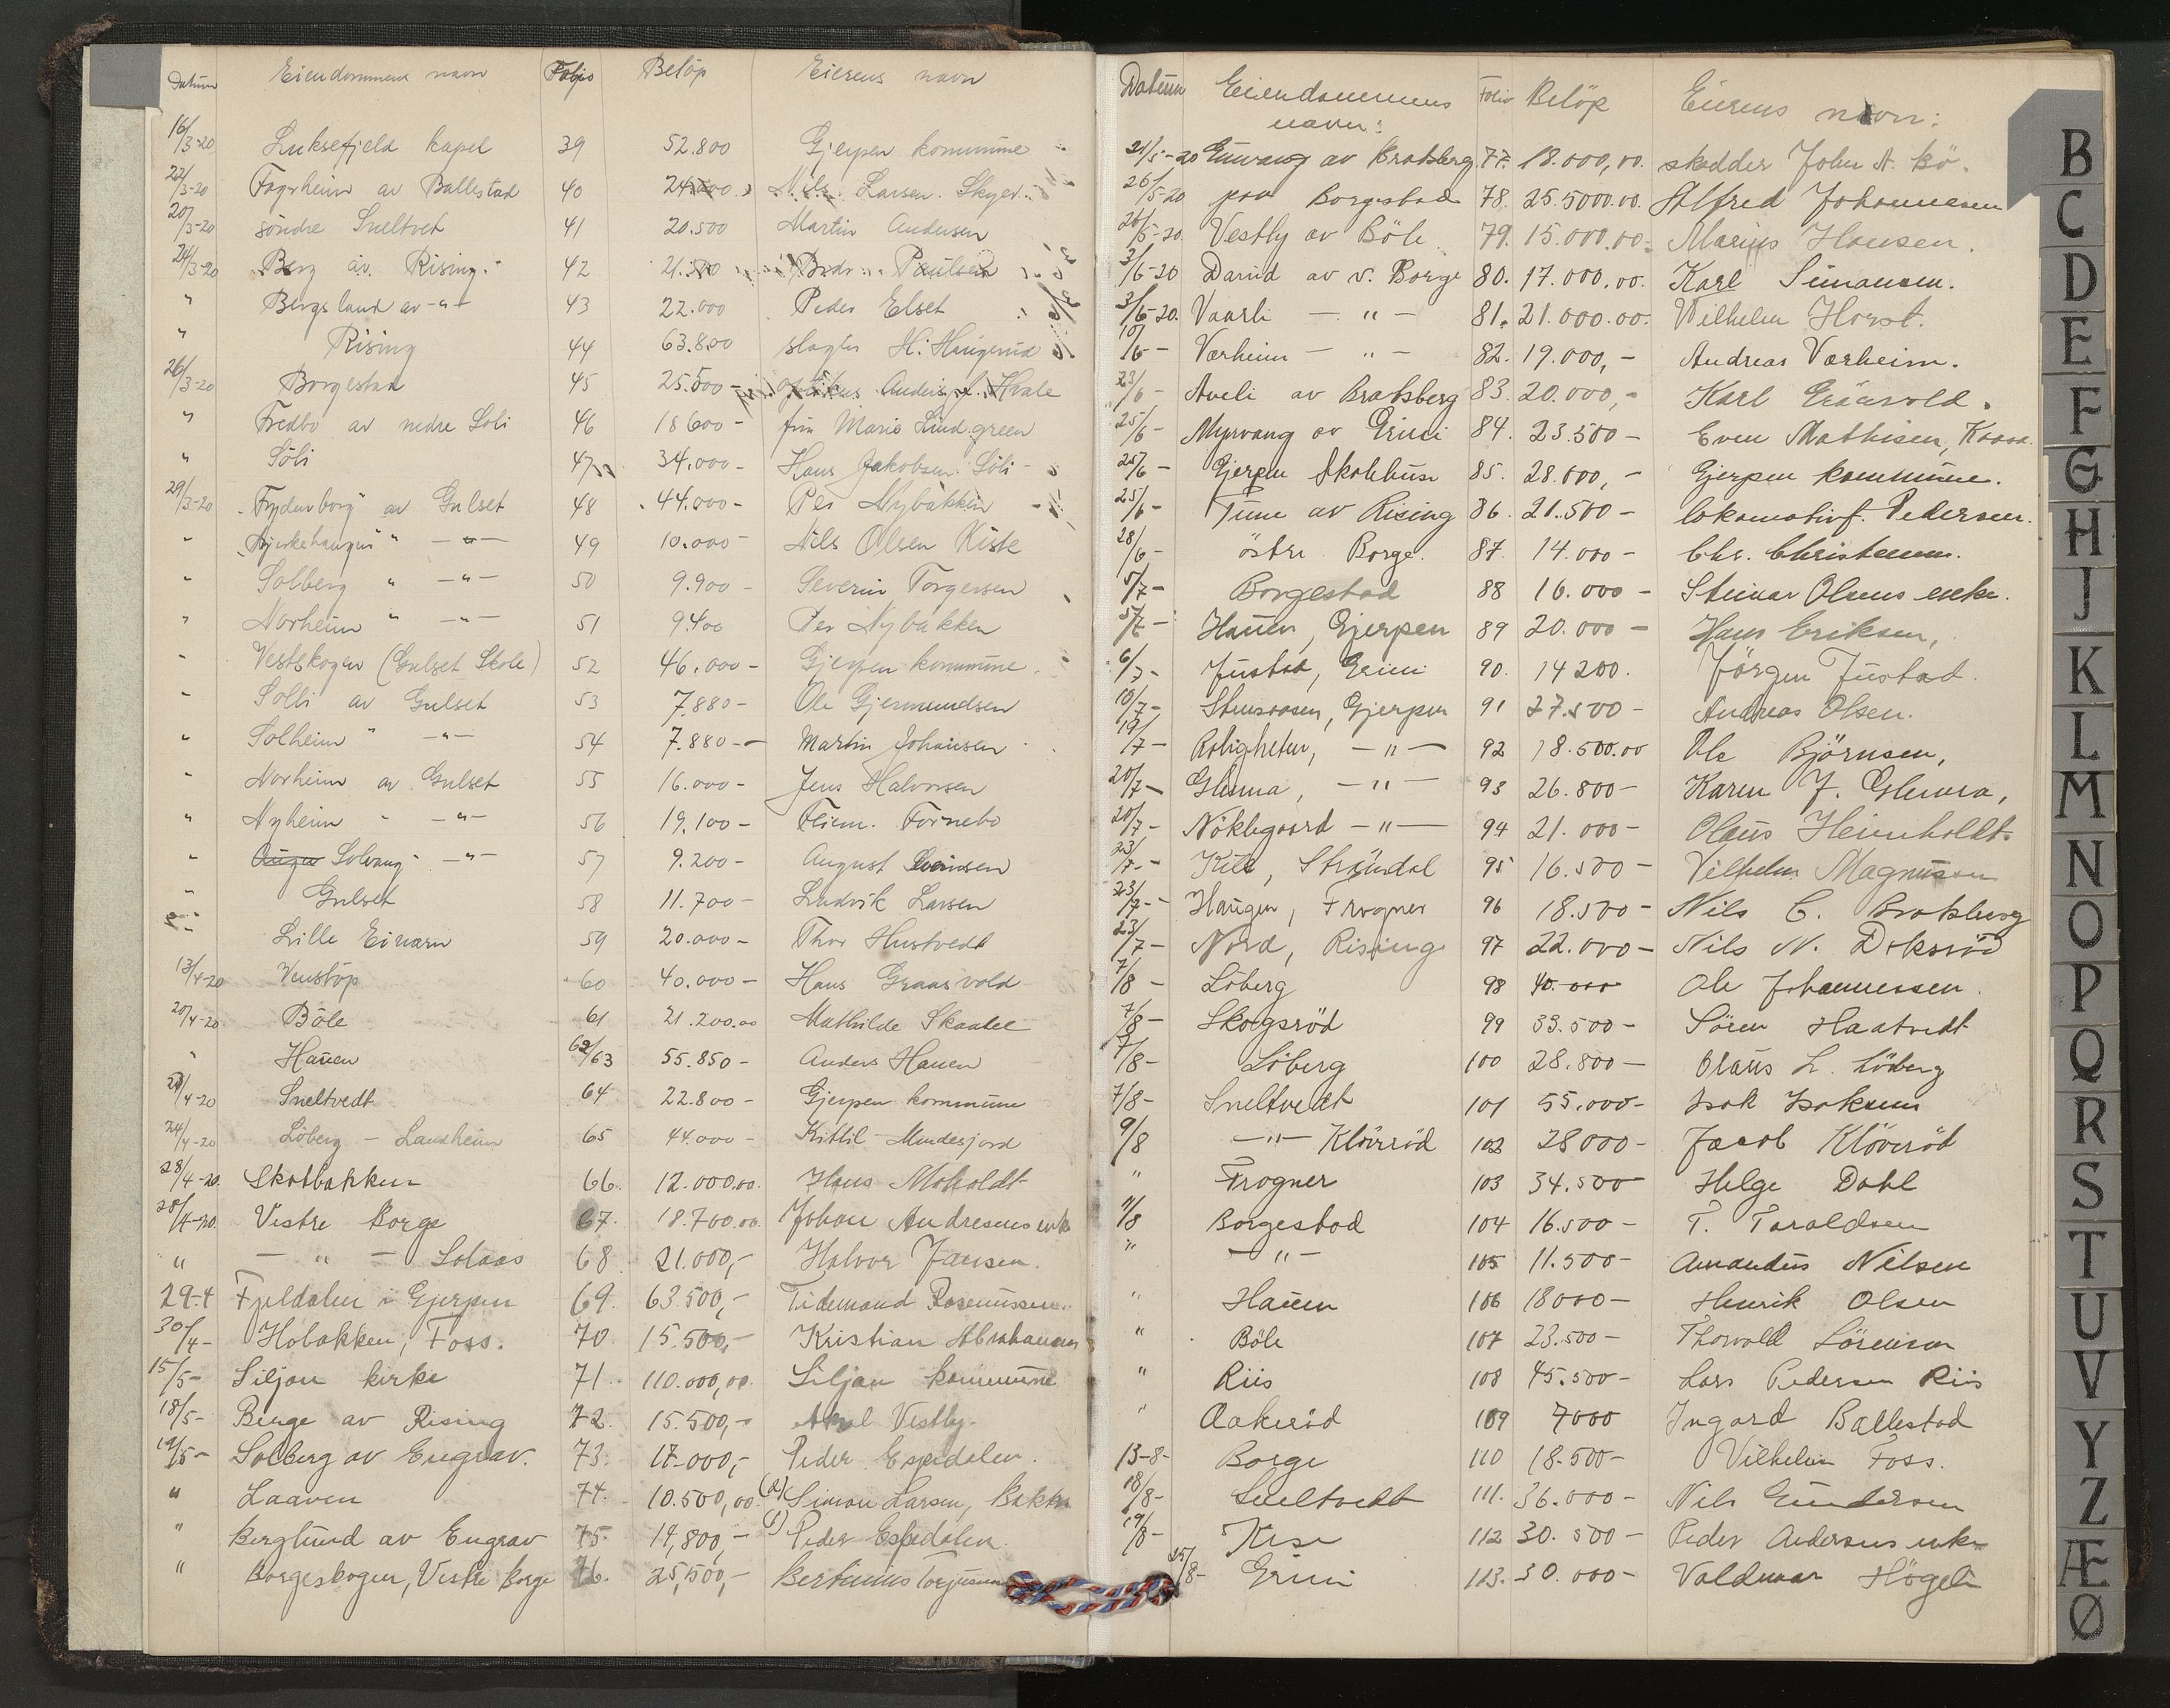 Datum Eiendommens navn Folio Beløp Eierens navn
16/3-20 Luksefjeld kapel 39 52.800 Gjerpen kommune
22/3-20 Fagerheim av Ballestad 40 Nils Larsen
20/3-20 söndre Sneltvet 41 20.500 Martin Andersen
24/3-20 Berg av Rising 42 Paulsen
" Bergsland av -"- 43 22.000 Peder Elset
" Rising 44 63.800 slagter H. Haugerud
26/3-20 Borgestad 45 25.500 - Hvale
" Fredbo av nedre Söli 46 18600 - Marie Lindgreen
" Söli 47 34.000 - Hans Jakobsen Söli
29/3-20 "Frydenborg" av Gulset 48 44.000 - Per Nybakken
" "Bjerkehaugen" -"- 49 10.000 - Nils Olsen Kiste
" Solberg " -"- 50 9.900 - Severin Torgersen
" Norheim " -"- 51 9400 Per Nybakken
" Vestskogen (Gulset Skole) 52 46.000 - Gjerpen kommune
" Solli av Gulset 53 7.880 - Ole Gjermundsen
" Solheim " -"- 54 7.880 - Martin Johansen
" Norheim av Gulset 55 16.000 - Jens Halvorsen
" Nyheim " -"- 56 19.100 - Fornebo
" Solvang " -"- 57 9.200 - August
" Gulset 58 11.700 - Ludvik Larsen
" Lille Eivarn 59 20.000 - Thor Hustvedt
13/4-20 Venstöp 60 40.000 - Hans Graasvold
20/4-20 Böle 61 21.200.00 Mathilde Skaalee
" Hauen 62/63 55.850 - Anders Hauen
/4-20 Sneltvedt 64 22.800 - Gjerpen kommune
24/4-20 Löberg - Landheim 65 44.000 - Kittil Mindesjord
28/4-20 Skotbakken 66. 12.000.00. Hans Moholdt
28/4-20. Vestre Borge 67. 18.700.00. Johan Andresens enke
" - " - Solaas 68 21.000,- Halvor Jansen.
29-4 Fjeldalen i Gjerpen 69. 63.500,- Tidemand Rasmussen
30/4- Hobakken, Foss. 70. 15.500,- Kristian Abrahamsen
15/5- Siljan kirke 71. 110.000,00. Siljan kommune
18/5- Berge av Rising 72. 15.500,- Vestby.
19/5- Solberg av Engrav. 73. 17.000,- Peder Espedalen.
" Laaven 74. 10.500,00. (2) Simon Larsen, Bakken
" Berglund av Engrav 75. 14,800,- (1) Peder Espedalen.
" Borgeskogen, Vestre Borge 76. 25,500,-
Datum Eiendommens navn: Folio Beløp Eierens navn:
21/5-20 Enerang av Bratsberg 77. 18.000,00. skredder John A. Bö.
26/5-20 paa Borgestad 78. 25.5000.00. Alfred Johannesen
26/5-20. Vestly av Böle 79. 15.000.00. Marius Hansen.
2/6-20 av v. Borge 80. 17.000.00. Karl Simonsen.
3/6-20. Vaarli - " - 81. 21.000.00. Wilhelm Horst.
10/6 - Varheim - " - 82. 19.000,- Andreas Varheim.
23/6 - Aveli av Bratsberg 83. 20.000,- Karl Graasvold.
25/6 - Myrvang av Grini 84. 23.500 - Even Mathisen,
25/6 - Gjerpen Skolehus 85. 28.000,- Gjerpen kommune.
25/6 - Tune av Rising 86. 21.500 - lokomotivf. Pedersen.
28/6 - östre Borge. 87. 14.000 - Chr. Christensen.
5/7 - Borgestad 88 16.000 - Steinar Olsens enke.
5/7 - Hauen, Gjerpen 89 20.000 - Hans Eriksen,
6/7 - Justad, Grini 90. 14200. Jörgen Justad.
10/7 - Stensaasen, Gjerpen 91 27.500 - Andreas Olsen.
19/7 - Roligheten, -"- 92 18.500.00 Ole Björnsen,
20/7 - Glenna, -"- 93 26.800 - Karen J. Glenna,
20/7 - Nöklegaard -"- 94 21.000 - Olaus Heimholdt.
23/7 - Kile, Strömdal 95 16.500 - Vilhelm Magnussen
23/7 - Haugen, Frogner 96 18.500 - Nils C. Bratsberg
23/7 - Nord, Rising 97 22.000 - Nils N. Doksröd
7/8 - Löberg 98 40.000 Ole Johannessen.
7/8 - Skogsröd 99 33.500 - Sören Haatvedt
7/8 - Löberg 100 28.800 - Olaus L. Löberg
7/8 - Sneltvedt 101 55.000 - Isak Isaksen
9/8 -"- Klöveröd 102 28000 - Jacob Klöveröd
" Frogner 103 34.500 Helge Dahl
11/8 Borgestad 104 16.500 - T. Taraldsen
" -"- 105 11.500 - Amandus Nilsen
" Hauen 106 18000 - Henrik Olsen
" Böle 107 23.500 - Thorvald Sörensen
" Riis 108 45.500 - Lars Pedersen Riis
" Aakeröd 109 7000 Ingard Ballestad
13-8- Borge 110 18.500 - Vilhelm Foss.
18/8 - Sneltvedt 111. 36.000 - Nils Gundersen
19/8 - 112 30.500 - Peder Andersens enke
25/8 - Grini 113. 30.000 - Valdmar Högeli
B
C
D
E
F
G
H
J
K
L
M
N
O
P
Q
R
S
T
U
V
Y
Z
Æ
Ø